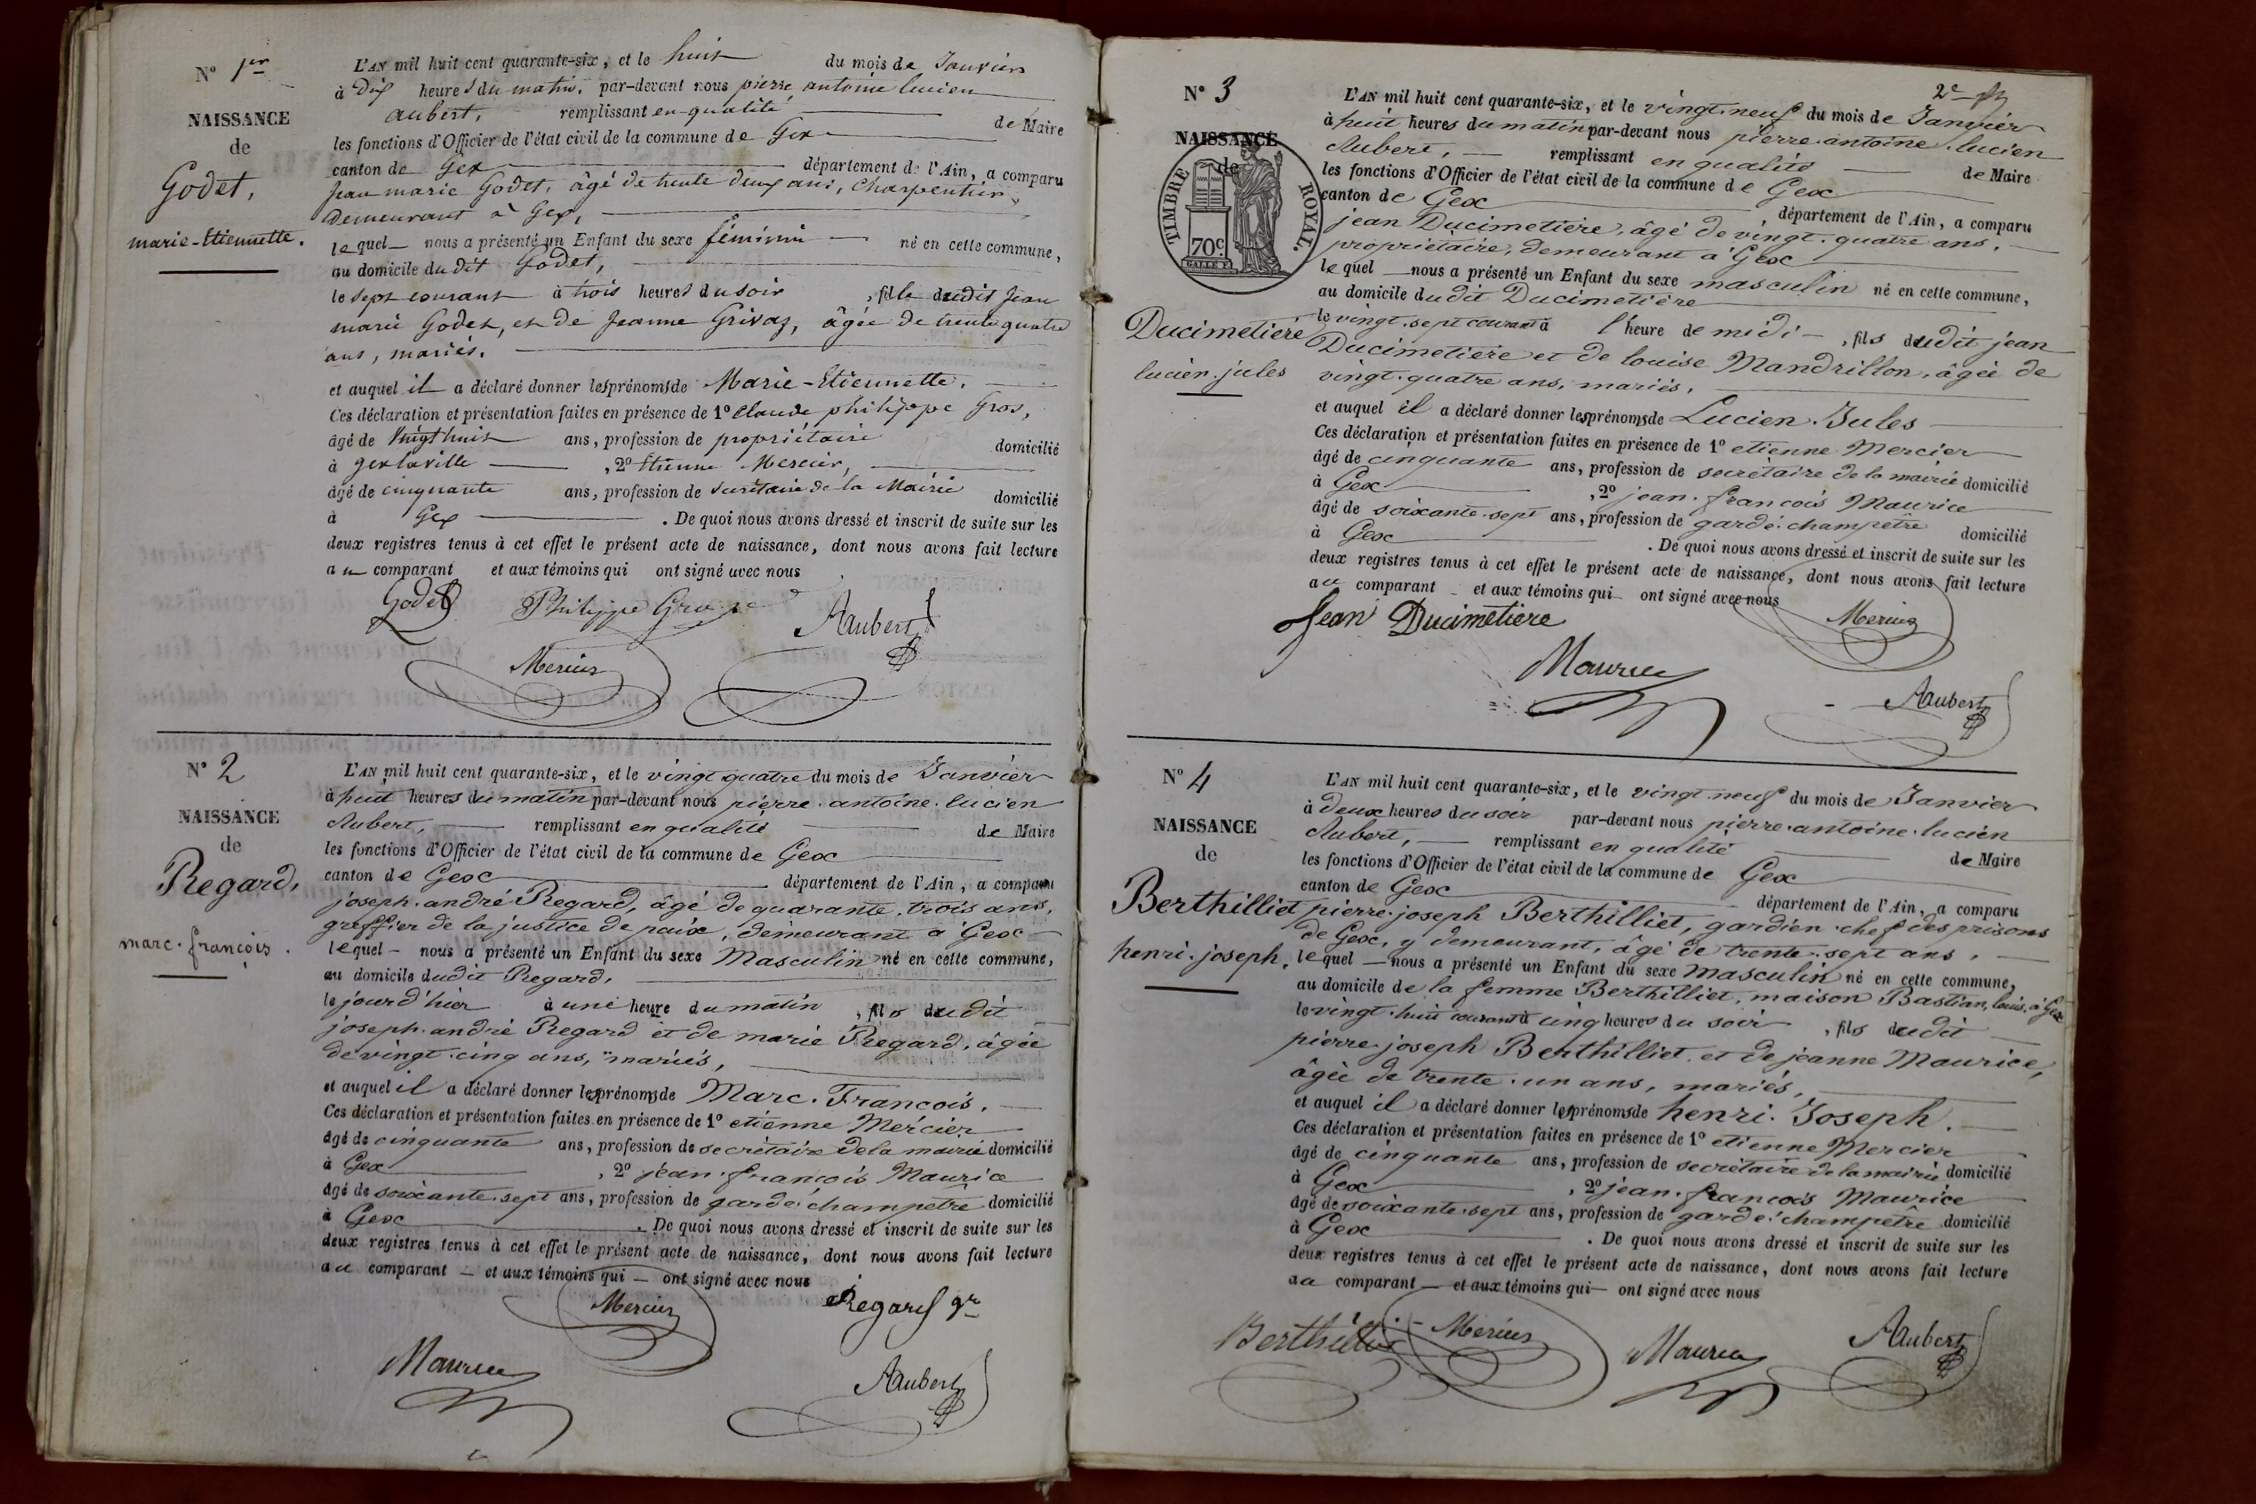 N° 1er
NAISSANCE
de
Godet,
marie-Etiennette.
L'AN mil huit cent quarante-six, et le huit du mois de Janvier
à Dix heures du matin, par-devant nous pierre antoine lucien
aubert, remplissant en qualité de Maire
les fonctions d'Officier de l'état civil de la commune de Gex
canton de Gex département de l'Ain, a comparu
Jean marie Godet, âgé de trente deux ans, Charpentier,
demeurant à Gex,
lequel nous a présenté un Enfant du sexe féminin né en cette commune,
au domicile dudit Godet,
le sept courant à trois heures du soir, fille dudit Jean
marie Godet, et de Jeanne Grivaz, âgée de trente quatre
ans, mariés.
et auquel il a déclaré donner les prénoms de Marie-Etiennette.
Ces déclaration et présentation faites en présence de 1° Claude philippe Gros,
âgé de vingt huit ans, profession de propriétaire domicilié
à gex la ville, 2° Etienne Mercier,
âgé de cinquante ans, profession de secrétaire de la Mairie domicilié
à Gex. De quoi nous avons dressé et inscrit de suite sur les
deux registres tenus à cet effet le présent acte de naissance, dont nous avons fait lecture
au comparant et aux témoins qui ont signé avec nous
Godet Philippe Gros Aubert
Mercier
N° 2
NAISSANCE
de
Regard,
marc. françois.
L'AN mil huit cent quarante-six, et le vingt quatre du mois de Janvier
à huit heures du matin par-devant nous pierre. antoine. lucien
Aubert, remplissant en qualité de Maire
les fonctions d'Officier de l'état civil de la commune de Gex
canton de Gex département de l'Ain, a comparu
joseph. andré Regard, âgé de quarante. trois ans,
greffier de la justice de paix, demeurant à Gex
lequel nous a présenté un Enfant du sexe Masculin né en cette commune,
au domicile dudit Regard,
le jourd'hier à une heure du matin, fils dudit
joseph. andré Regard et de marie Regard, âgée
de vingt. cinq ans, mariés,
et auquel il a déclaré donner les prénoms de Marc. François.
Ces déclaration et présentation faites en présence de 1° etienne Mercier
âgé de cinquante ans, profession de secrétaire de la mairie domicilié
à Gex, 2° jean. françois Maurice
âgé de soixante. sept ans, profession de garde champetre domicilié
à Gex. De quoi nous avons dressé et inscrit de suite sur les
deux registres tenus à cet effet le présent acte de naissance, dont nous avons fait lecture
au comparant et aux témoins qui ont signé avec nous
Mercier Regard gr
Maurice
Aubert
2e
N° 3
NAISSANCE
de
TIMBRE ROYAL.
70c.
Ducimetière
lucien. jules
L'AN mil huit cent quarante-six, et le vingt. neuf du mois de Janvier
à huit heures du matin par-devant nous pierre. antoine. lucien
Aubert, remplissant en qualité de Maire
les fonctions d'Officier de l'état civil de la commune de Gex
canton de Gex, département de l'Ain, a comparu
jean Ducimetière, âgé de vingt. quatre ans,
propriétaire, demeurant à Gex
lequel nous a présenté un Enfant du sexe masculin né en cette commune,
au domicile dudit Ducimetière
le vingt. sept courant à l'heure de midi, fils dudit jean
Ducimetière et de louise Mandrillon, âgée de
vingt. quatre ans, mariés,
et auquel il a déclaré donner les prénoms de Lucien. Jules
Ces déclaration et présentation faites en présence de 1° etienne Mercier
âgé de cinquante ans, profession de secrétaire de la mairie domicilié
à Gex, 2° jean. françois Maurice
âgé de soixante. sept ans, profession de garde. champêtre domicilié
à Gex. De quoi nous avons dressé et inscrit de suite sur les
deux registres tenus à cet effet le présent acte de naissance, dont nous avons fait lecture
au comparant et aux témoins qui ont signé avec nous
Jean Ducimetiere Mercier
Maurice
Aubert
N° 4
NAISSANCE
de
Berthilliet
henri. joseph.
L'AN mil huit cent quarante-six, et le vingt. neuf du mois de Janvier
à deux heures du soir par-devant nous pierre. antoine. lucien
Aubert, remplissant en qualité de Maire
les fonctions d'Officier de l'état civil de la commune de Gex
canton de Gex département de l'Ain, a comparu
pierre. joseph Berthilliet, gardien. chef des prisons
de Gex, y demeurant, âgé de trente. sept ans,
lequel nous a présenté un Enfant du sexe masculin né en cette commune,
au domicile de la femme Berthilliet, maison Bastian, louis, à Gex
le vingt. huit courant à cinq heures du soir, fils dudit
pierre. joseph Berthilliet, et de jeanne Maurice,
âgée de trente. un ans, mariés,
et auquel il a déclaré donner les prénoms de henri. Joseph.
Ces déclaration et présentation faites en présence de 1° etienne Mercier
âgé de cinquante ans, profession de secrétaire de la mairie domicilié
à Gex, 2° jean. françois Maurice
âgé de soixante. sept ans, profession de garde. champêtre domicilié
à Gex. De quoi nous avons dressé et inscrit de suite sur les
deux registres tenus à cet effet le présent acte de naissance, dont nous avons fait lecture
au comparant et aux témoins qui ont signé avec nous
Berthilliet Mercier Maurice Aubert